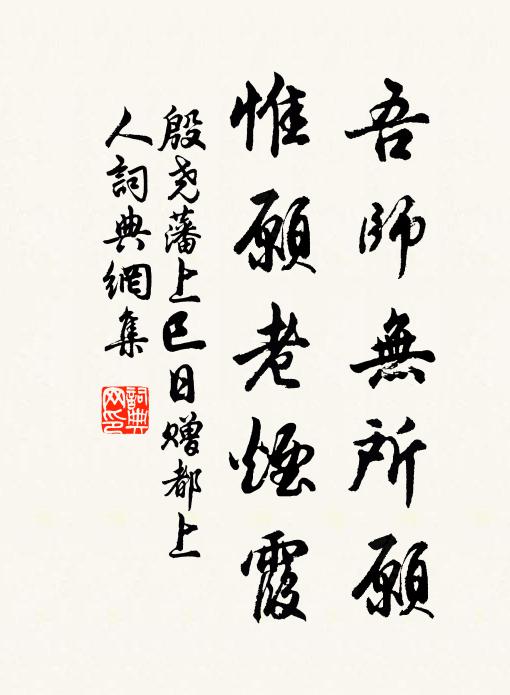 吾師無所願
惟願老煙霞
殷尭藩上巳日贈都上
人詞典網集
詞典
网印